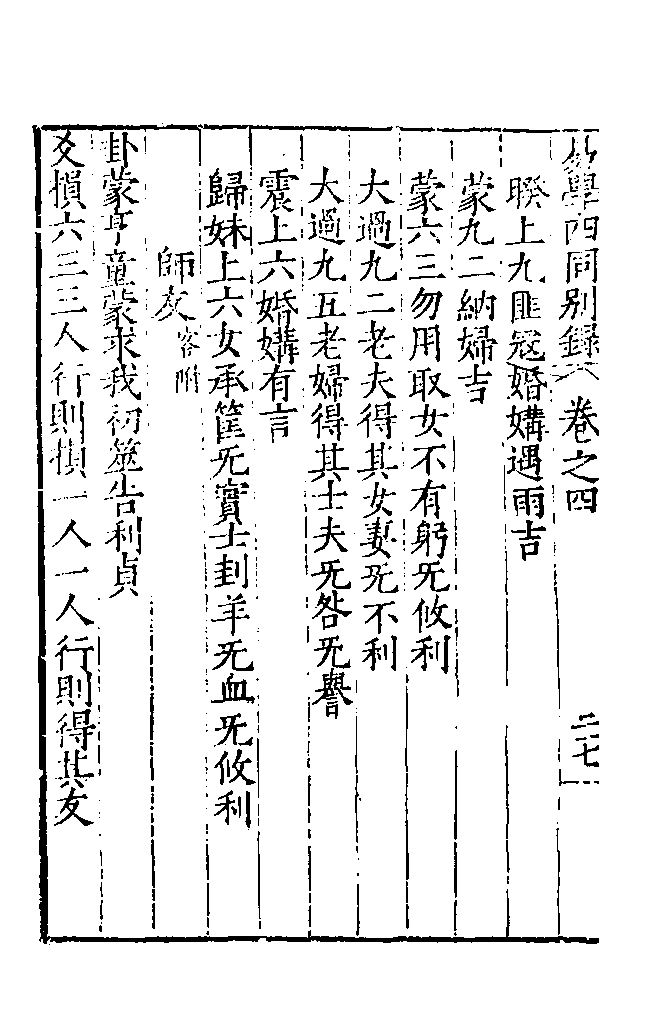 易學四同別録 卷之四 二七
睽上九匪寇婚媾遇雨吉
蒙九二納婦吉
蒙六三勿用取女不有躬旡攸利
大過九二老夫得其女妻旡不利
大過九五老婦得其士夫旡咎旡譽
震上六婚媾有言
歸妹上六女承筐旡實士刲羊旡血旡攸利
師友客附
卦蒙亨童蒙求我初筮告利貞
爻損六三三人行則損一人一人行則得其友